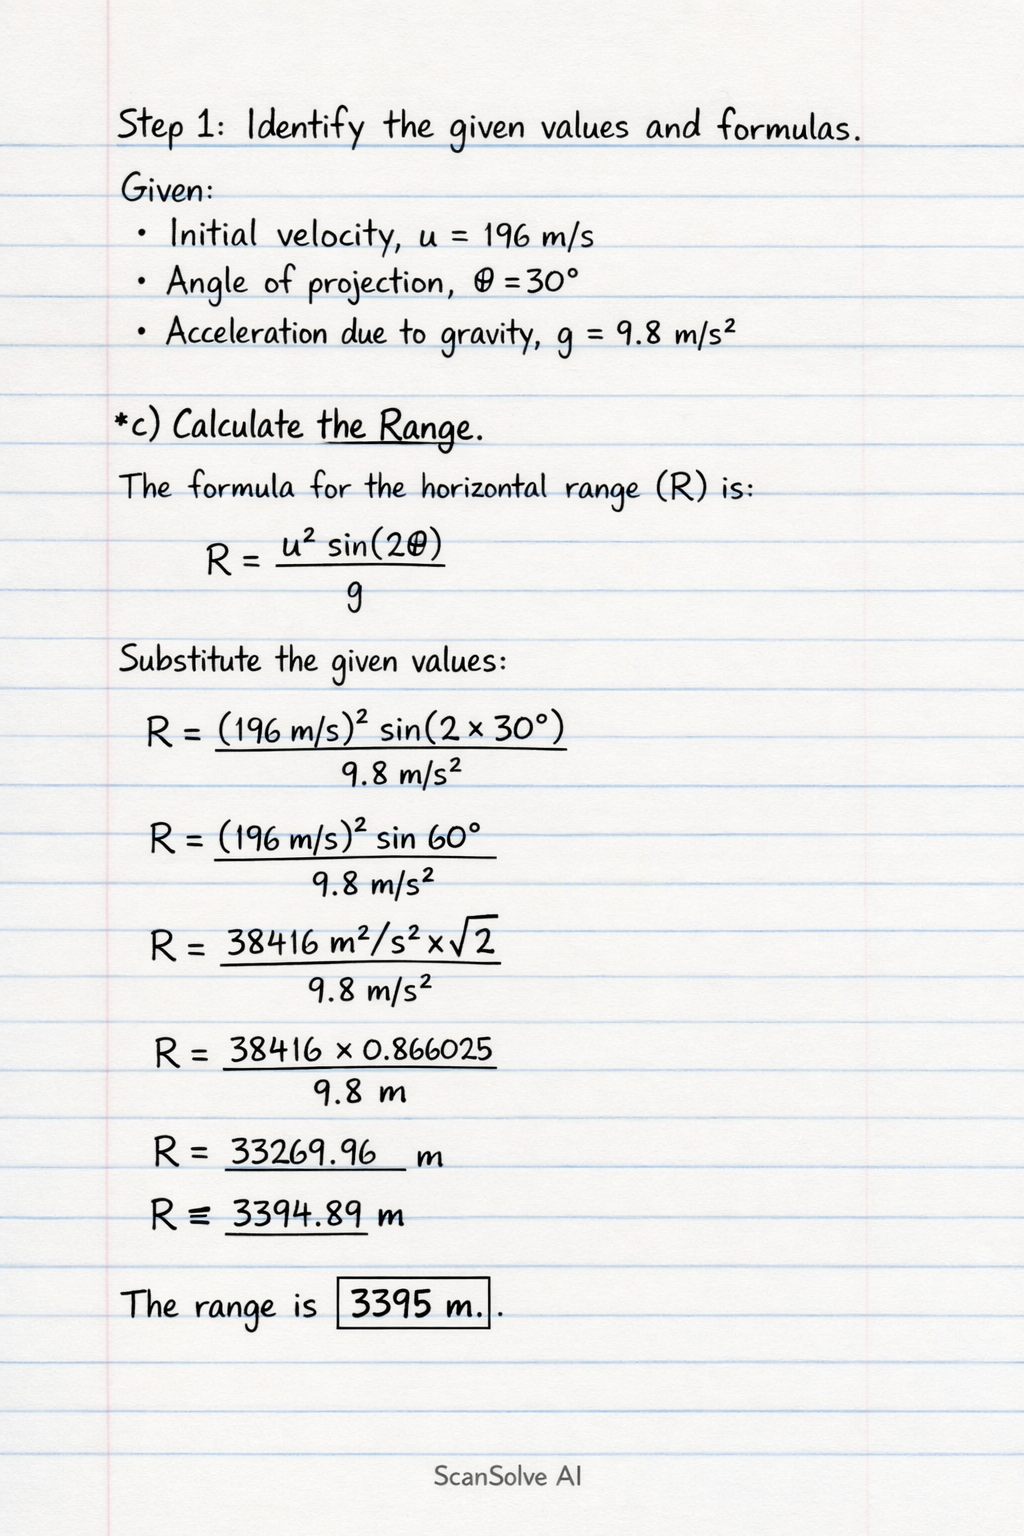 Step 1: Identify the given values and formulas.
Given:
• Initial velocity, u = 196 m/s
• Angle of projection, θ = 30°
• Acceleration due to gravity, g = 9.8 m/s²
*c) Calculate the Range.
The formula for the horizontal range (R) is:
R = u² sin(2θ)
g
Substitute the given values:
R = (196 m/s)² sin(2 × 30°)
9.8 m/s²
R = (196 m/s)² sin 60°
9.8 m/s²
R = 38416 m²/s² × √2
9.8 m/s²
R = 38416 × 0.866025
9.8 m
R = 33269.96 m
R ≡ 3394.89 m
The range is 3395 m. .
ScanSolve AI